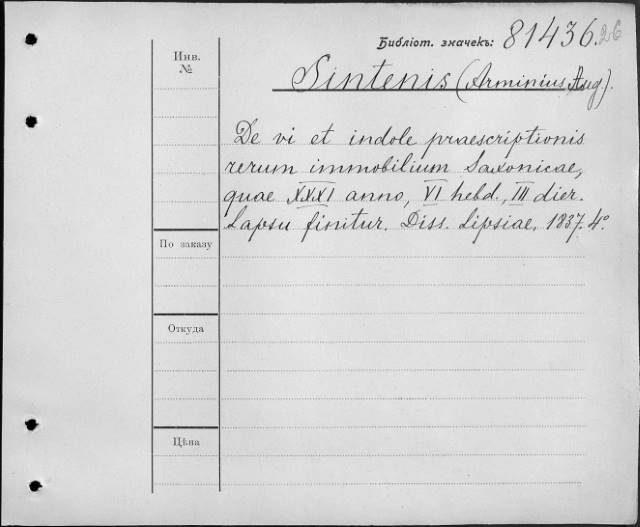 Библіот. значекъ: 81436.26
Инв.
№
Sintenis (Arminius Aug).
De vi et indole praescriptionis
rerum immobilium Saxonicae,
quae XXXI anno, VI hebd., III dier.
Lapsu finitur. Diss. Lipsiae, 1837. 4º
По заказу
Откуда
Цѣна